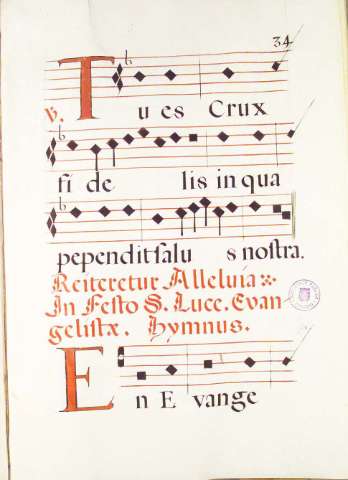 34
V. Tu es Crux
fi de lis in qua
pependit salu s nostra.
Reiteretur Alleluia
In Festo S. Luce. Evan
gelistæ. Hymnus.
En E vange